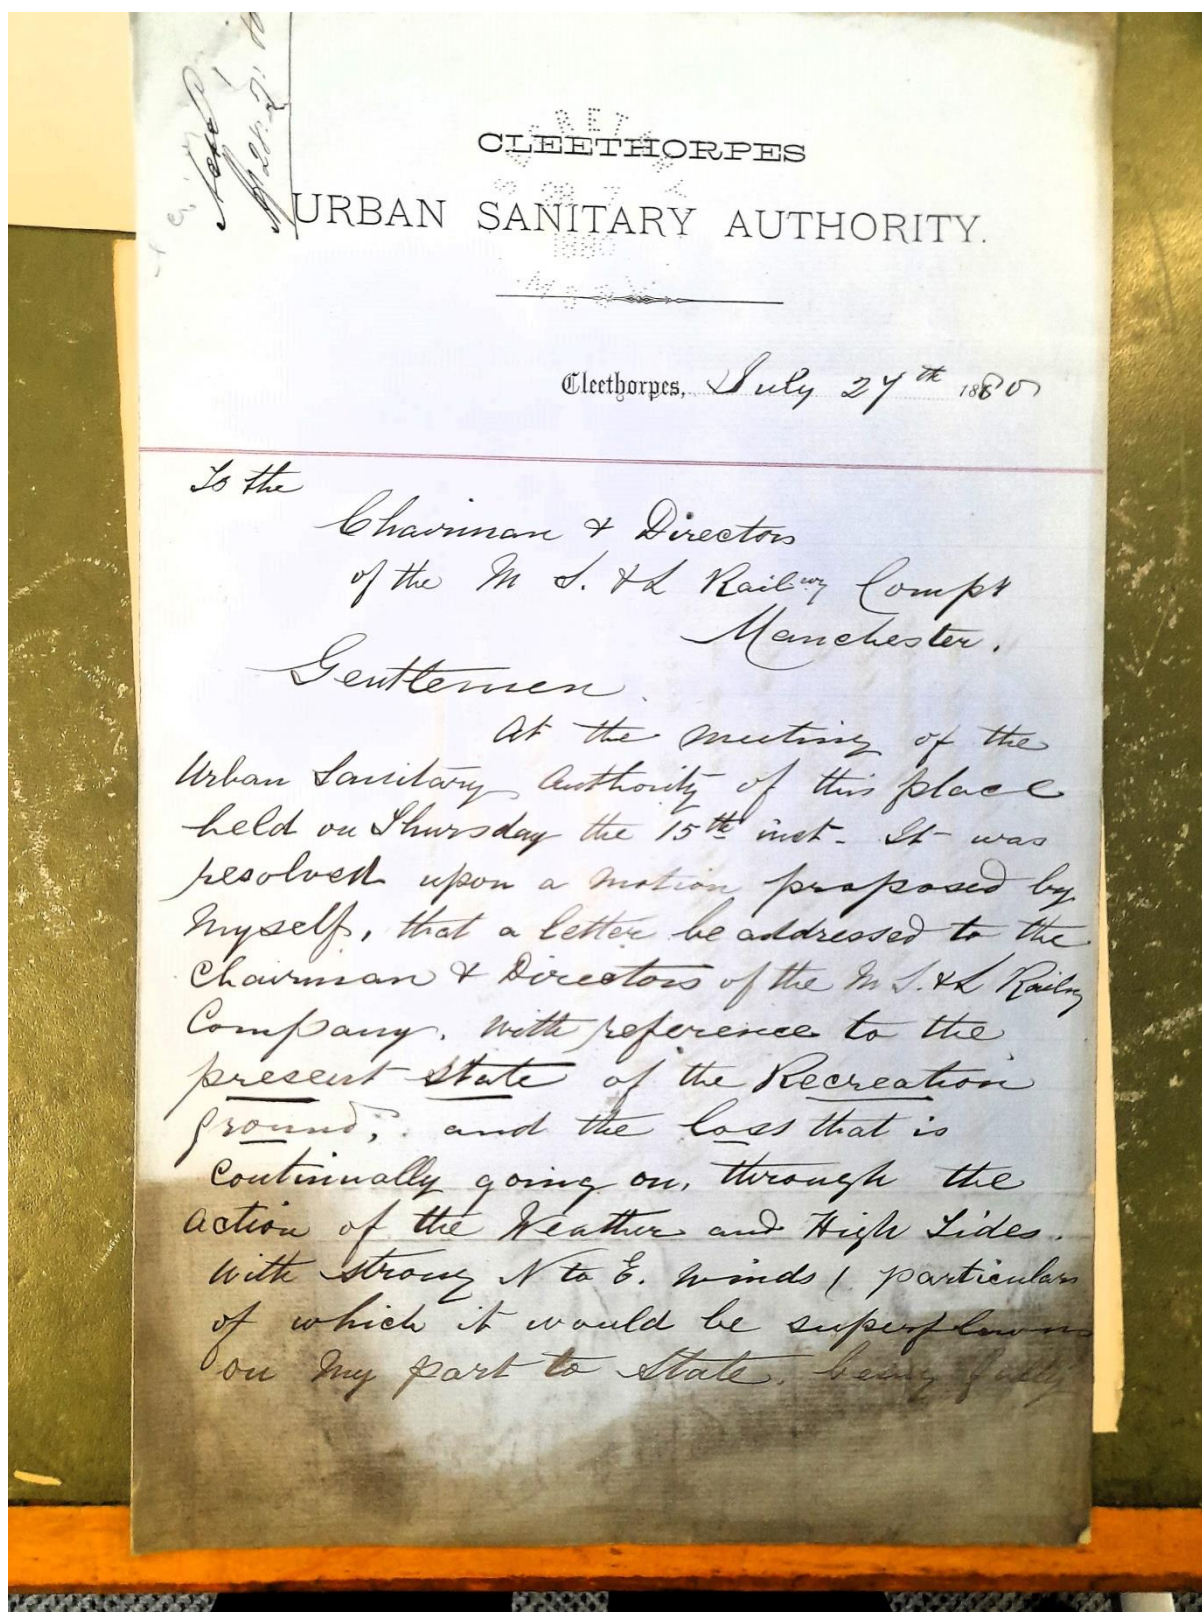 CLEETHORPES
URBAN SANITARY AUTHORITY.
Cleethorpes, July 27th 1880
To the
Chairman & Directors
of the M S. & L Railwy Compy
Manchester.
Gentlemen.
At the meeting of the
Urban Sanitary Authority of this place
held on Thursday the 15th inst. It was
resolved upon a motion proposed by
Myself, that a letter be addressed to the
Chairman & Directors of the M S. & L Railwy
Company. With reference to the
present state of the Recreation
ground, and the loss that is
continually going on, through the
action of the Weather and High Tides.
With strong N to E. winds (particulars
of which it would be superfluous
on My part to state. being fully